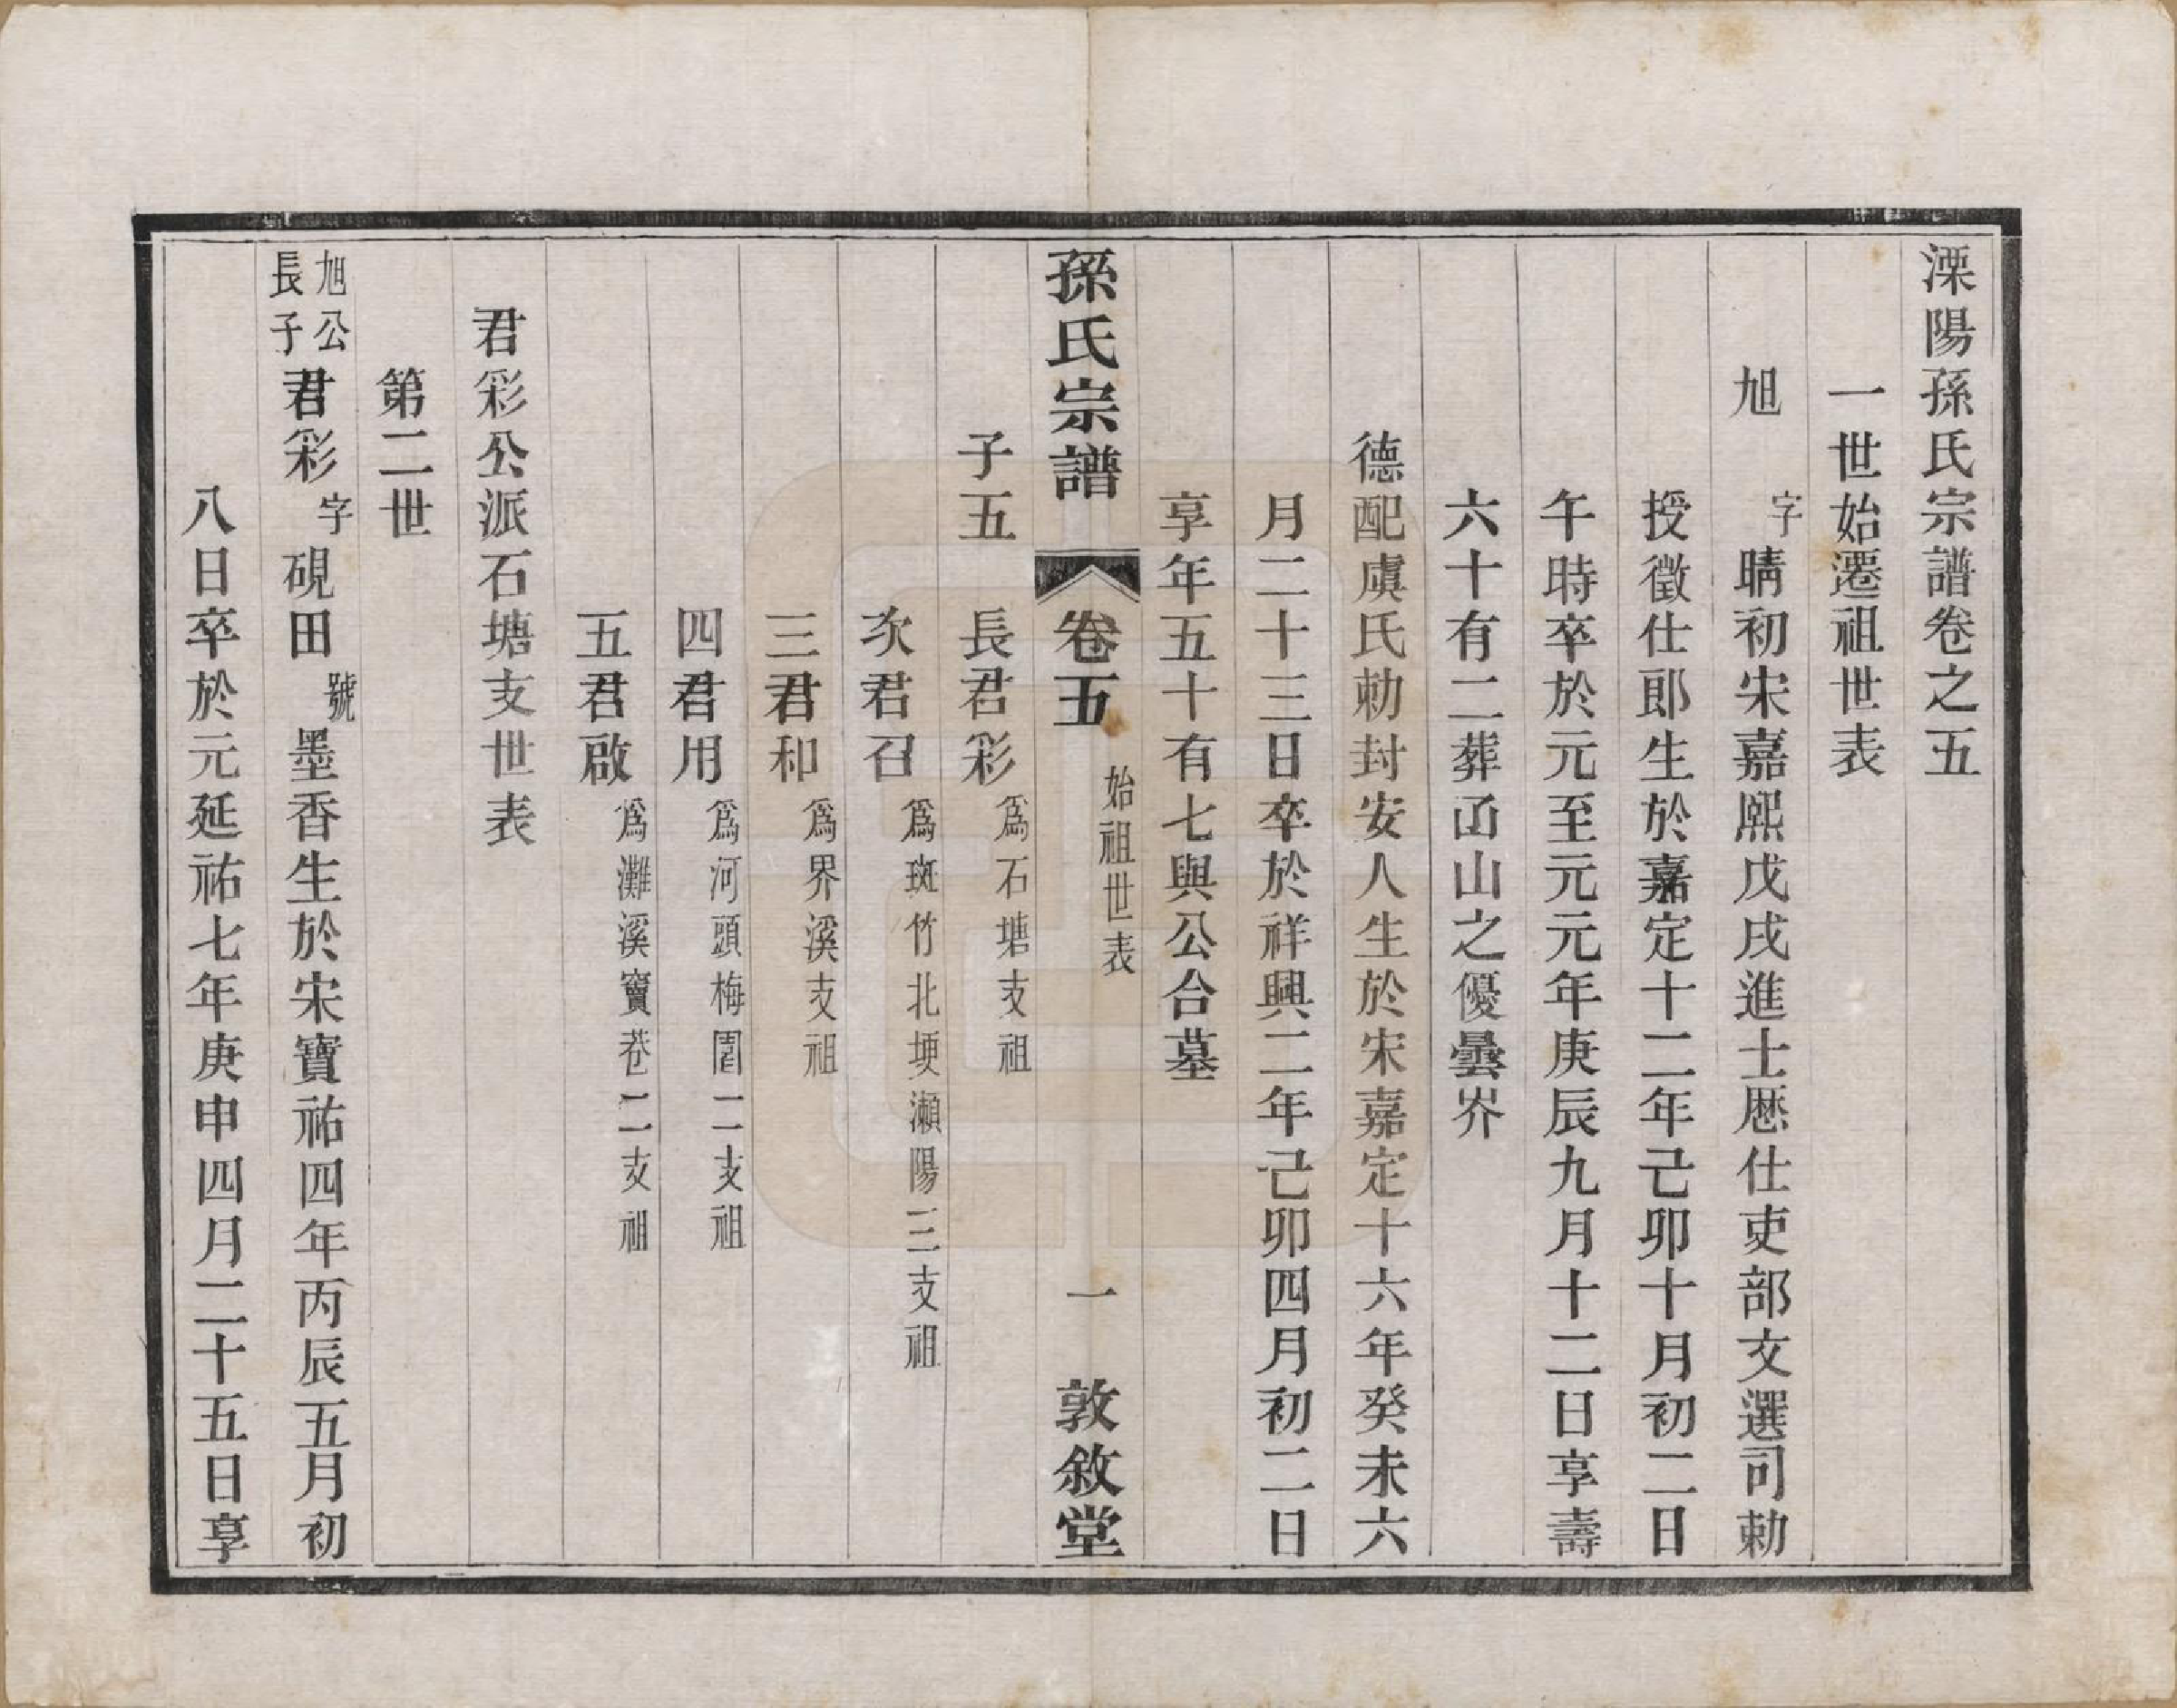 溧陽孫氏宗譜卷之五
一世始遷祖世表
旭　字晴初宋嘉熙戊戌進士歷仕吏部文選司勅
授徵仕郎生於嘉定十二年己卯十月初二日
午時卒於元至元元年庚辰九月十二日享壽
六十有二葬凾山之優曇岕
德配虞氏勅封安人生於宋嘉定十六年癸未六
月二十三日卒於祥興二年己卯四月初二日
享年五十有七與公合墓
孫氏宗譜　卷五　始祖世表　一　敦敘堂
子五　長君彩為石塘支祖
次君召為斑竹北埂瀨陽三支祖
三君和為界溪支祖
四君用為河頭梅園二支祖
五君啟為灘溪竇巷二支祖
君彩公派石塘支世表
第二世
旭公長子君彩字硯田號墨香生於宋寶祐四年丙辰五月初
八日卒於元延祐七年庚申四月二十五日享